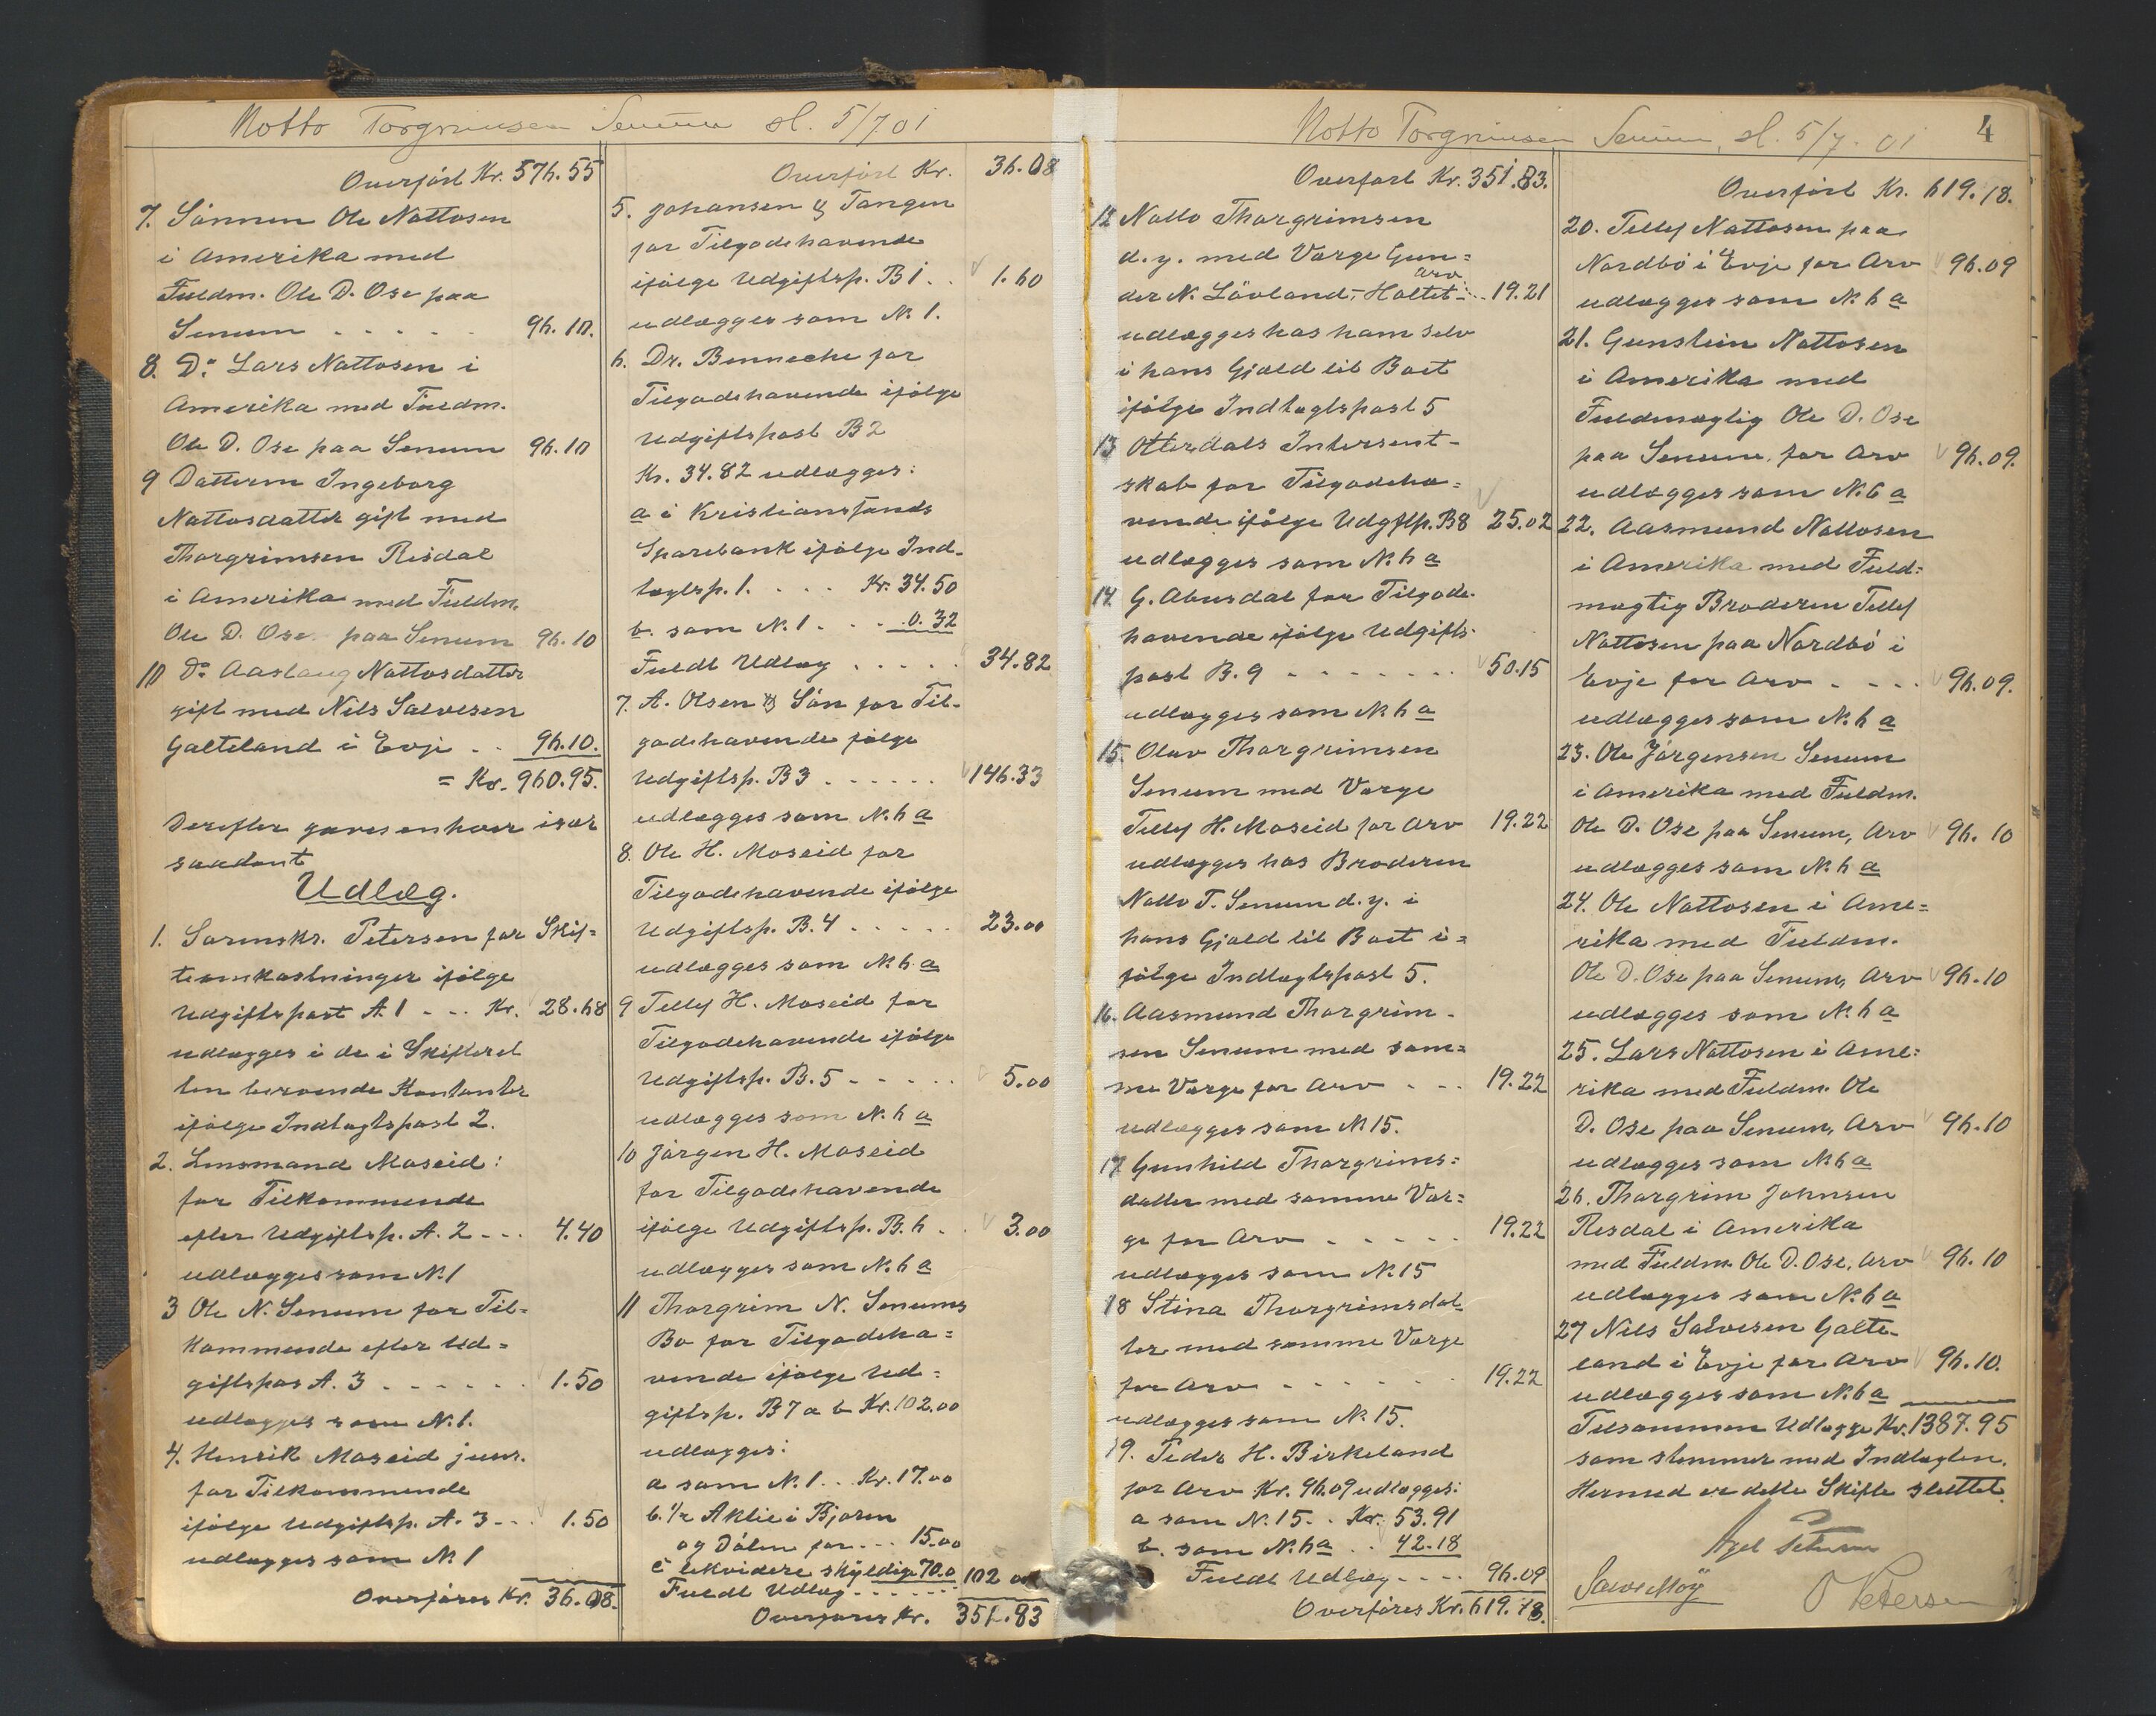 Notto Torgrimsen Senum sl. 5/7 01
Overført Kr. 576.55
7. Sønnen Ole Nottosen
i Amerika med
Fuldm. Ole D. Ose paa
Senum . . . . . 96.10.
8. Do Lars Nottosen i
Amerika med Fuldm.
Ole D. Ose paa Senum 96.10
9 Datteren Ingeborg
Nottosdatter gift med
Thorgrimsen Risdal
i Amerika med Fuldm.
Ole D. Ose paa Senum 96.10
10 Do Aaslaug Nottosdatter
gift med Nils Salvesen
Galteland i Evje . . 96.10.
= Kr. 960.95.
Derefter gaves enhver især
saadant
Udlæg.
1. Sorenskr. Petersen for Skif=
teomkostninger ifølge
Udgiftspost A. 1 - .. Kr. 28.68
udlægges i de i Skifteret
ten beroende Kontanter
ifølge Indtægtspost 2.
2. Lensmand Moseid:
for Tilkommende
efter Udgiftsp. A. 2 - .. 4.40
udlægges som N. 1
3 Ole N. Senum for Til=
kommende efter Ud=
giftspos A. 3 . . . . . 1.50
udlægges som N. 1.
4. Henrik Moseid junr.
for Tilkommende
ifølge Udgiftsp. A. 3 - . . 1.50
udlægges som N. 1
Overføres Kr. 36.08.
Overført Kr. 36.08
5. Johansen & Tangen
for Tilgodehavende
ifølge Udgiftsp. B 1 . . 1.60
udlægges som N. 1.
6. Dr. Benneche for
Tilgodehavende ifølge
Udgiftspost B 2
Kr. 34.82 udlægges:
a i Kristianssands
Sparebank ifølge Ind-
tægtsp. 1. . . . Kr. 34.50
b. som N. 1 . . . 0.32
Fuldt Udlæg . . . . . 34.82
7. A. Olsen & Søn for Til-
godehavende følge
Udgiftsp. B 3 . . . . . . 146.33
udlægges som N. 6 a
8. Ole H. Moseid for
Tilgodehavende ifølge
Udgiftsp. B. 4 . . . . . 23.00
udlægges som N. 6 a
9 Tellef H. Moseid for
Tilgodehavende ifølge
Udgiftsp. B. 5 - . . . . 5.00
udlægges som N. 6 a
10 Jørgen H. Moseid
for Tilgodehavende
ifølge Udgiftsp. B. 6 . . 3.00
udlægges som N. 6 a
11 Thorgrim N. Senums
Bo for Tilgodeha=
vende ifølge Ud=
giftsp. B 7 a b Kr. 102.00
udlægges:
a som N. 1 . . Kr. 17.00
b. 1/2 Aktie i Bjoren
og Dålen for . . . 15.00
c likvidere skyldige 70.0
Fuldt Udlæg . . . . . . 102 00
Overføres Kr. 351.83
Notto Torgrimsen Senum, sl. 5/7. 01
4
Overført Kr. 351.83.
12 Notto Thorgrimsen
d. y. med Værge Gun=
der N. Løvland, Holtet arv . . 19.21
udlægges hos ham selv
i hans Gjæld til Boet
ifølge Indtægtspost 5
13 Otterdals Intersent-
skab for Tilgodeha=
vende ifølge Udgftsp. B 8 25.02
udlægges som N. 6 a
14. G. Abusdal for Tilgode-
havende ifølge Udgifts-
post B. 9 - - - - . . . 50.15
udlægges som N. 6 a
15. Olav Thorgrimsen
Senum med Værge
Tellef H. Moseid for Arv 19.22
udlægges hos Broderen
Notto T. Senum d. y. i
hans Gjæld til Boet i=
følge Indtægtspost 5.
16. Aasmund Thorgrim-
sen Senum med sam=
me Værge for Arv - . - 19.22
udlægges som N 15.
17. Gunhild Thorgrims=
datter med samme Vær=
ge for Arv - . - - . 19.22
udlægges som N. 15
18 Stina Thorgrimsdat-
ter med samme Værge
for Arv - - - - . . 19.22
udlægges som N. 15.
19. Peder H. Birkeland
for Arv Kr. 96.09 udlægges:
a som N. 15 . . Kr. 53.91
b. som N. 6 a . . 42.18
Fuldt Udlæg . . . . 96.09
Overføres Kr. 619.18.
Overført Kr. 619.18.
20. Tellef Nottosen paa
Nordbø i Evje for Arv 96.09
udlægges som N. 6 a
21. Gunstein Nottosen
i Amerika med
Fuldmægtig Ole D. Ose
paa Senum, for Arv 96.09.
udlægges som N. 6 a
22. Aasmund Nottosen
i Amerika med Fuld=
mægtig Broderen Tellef
Nottosen paa Nordbø i
Evje for Arv . . . . 96.09.
udlægges som N. 6 a
23. Ole Jørgensen Senum
i Amerika med Fuldm.
Ole D. Ose paa Senum, Arv 96.10
udlægges som N. 6 a
24. Ole Nottosen i Ame=
rika med Fuldm.
Ole D. Ose paa Senum, Arv 96.10
udlægges som N. 6 a
25. Lars Nottosen i Ame=
rika med Fuldm. Ole
D. Ose paa Senum, Arv 96.10
udlægges som N. 6 a
26. Thorgrim Johnsen
Risdal i Amerika
med Fuldm. Ole D. Ose, Arv 96.10
udlægges som N. 6 a
27 Nils Salvesen Galte-
land i Evje for Arv 96.10.
udlægges som N. 6 a
Tilsammen Udlægge Kr. 1387.95
som stemmer med Indtægten.
Hermed er dette Skifte sluttet.
Axel Petersen
O Petersen